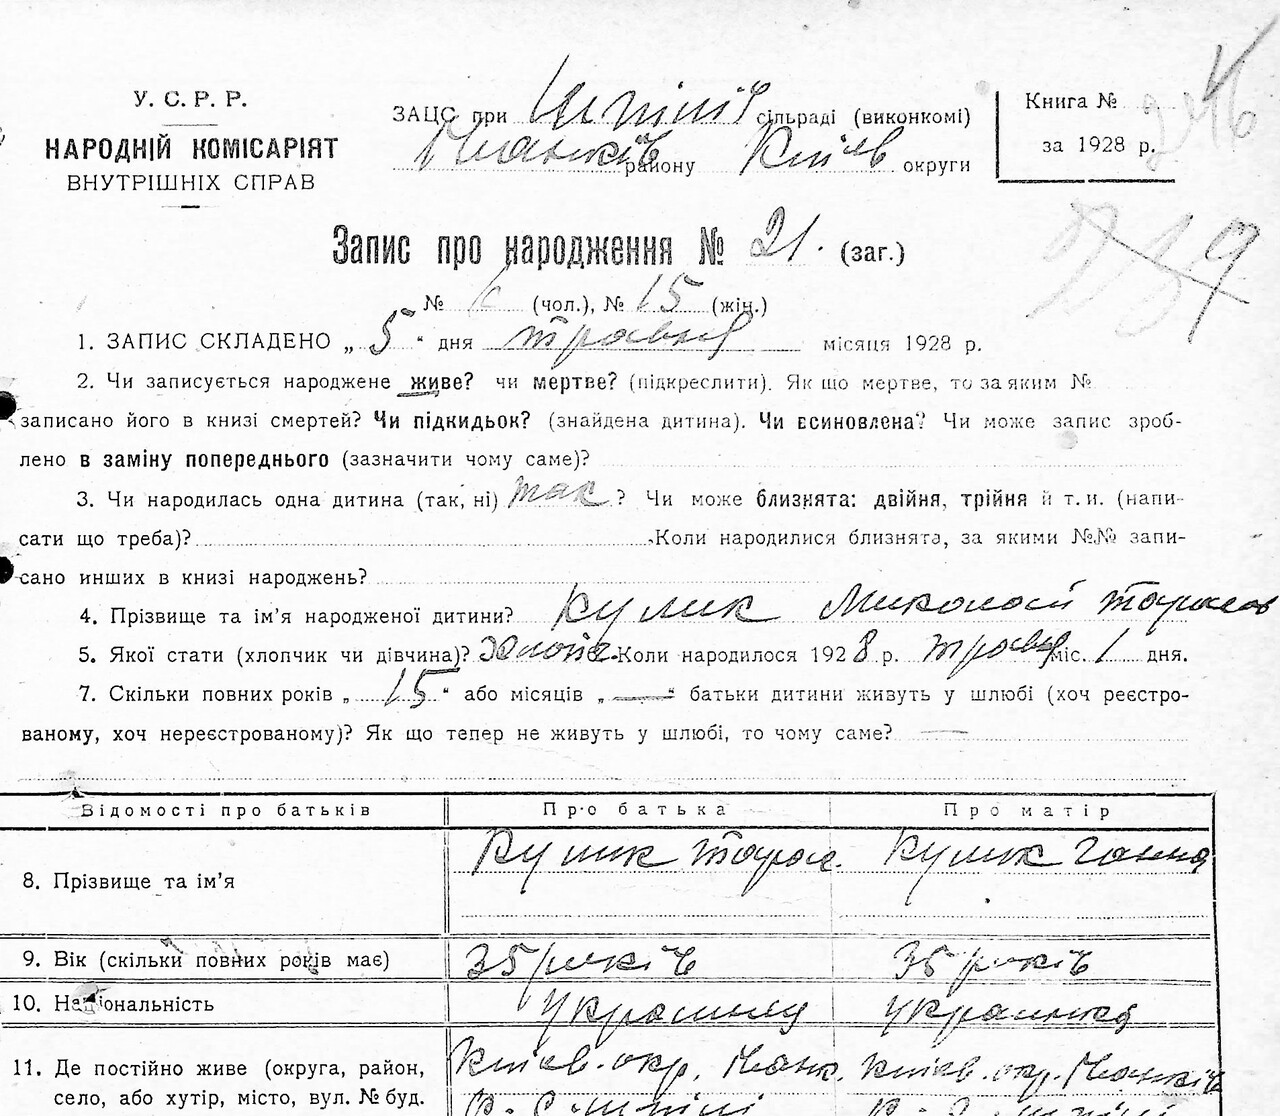 У. С. Р. Р.
НАРОДНІЙ КОМІСАРІЯТ
ВНУТРІШНІХ СПРАВ
ЗАЦС при сільраді (виконкомі)
району Київ округи
Книга №
за 1928 р.
Запис про народження № 21. (заг.)
№ (чол.), № 15 (жін.)
1. ЗАПИС СКЛАДЕНО „ 5 “ дня травня місяця 1928 р.
2. Чи записується народжене живе? чи мертве? (підкреслити). Як що мертве, то за яким №
записано його в книзі смертей? Чи підкидьок? (знайдена дитина). Чи всиновлена? Чи може запис зроб-
лено в заміну попереднього (зазначити чому саме)?
3. Чи народилась одна дитина (так, ні) так ? Чи може близнята: двійня, трійня й т. и. (напи-
сати що треба)? Коли народилися близнята, за якими №№ запи-
сано инших в книзі народжень?
4. Прізвище та ім’я народженої дитини? Кулик Миколай Тарасов
5. Якої стати (хлопчик чи дівчина)? Хлопч. Коли народилося 1928 р. травня міс. 1 дня.
7. Скільки повних років „ 15 “ або місяців „ — “ батьки дитини живуть у шлюбі (хоч реєстро-
ваному, хоч нереєстрованому)? Як що тепер не живуть у шлюбі, то чому саме? —
Відомості про батьків Про батька Про матір
8. Прізвище та ім’я Кулик Тарас. Кулик Ганна
9. Вік (скільки повних років має) 35 років 35 років
10. Національність Українец Українка
11. Де постійно живе (округа, район, Київ. окр. Київ. окр.
село, або хутір, місто, вул. № буд.